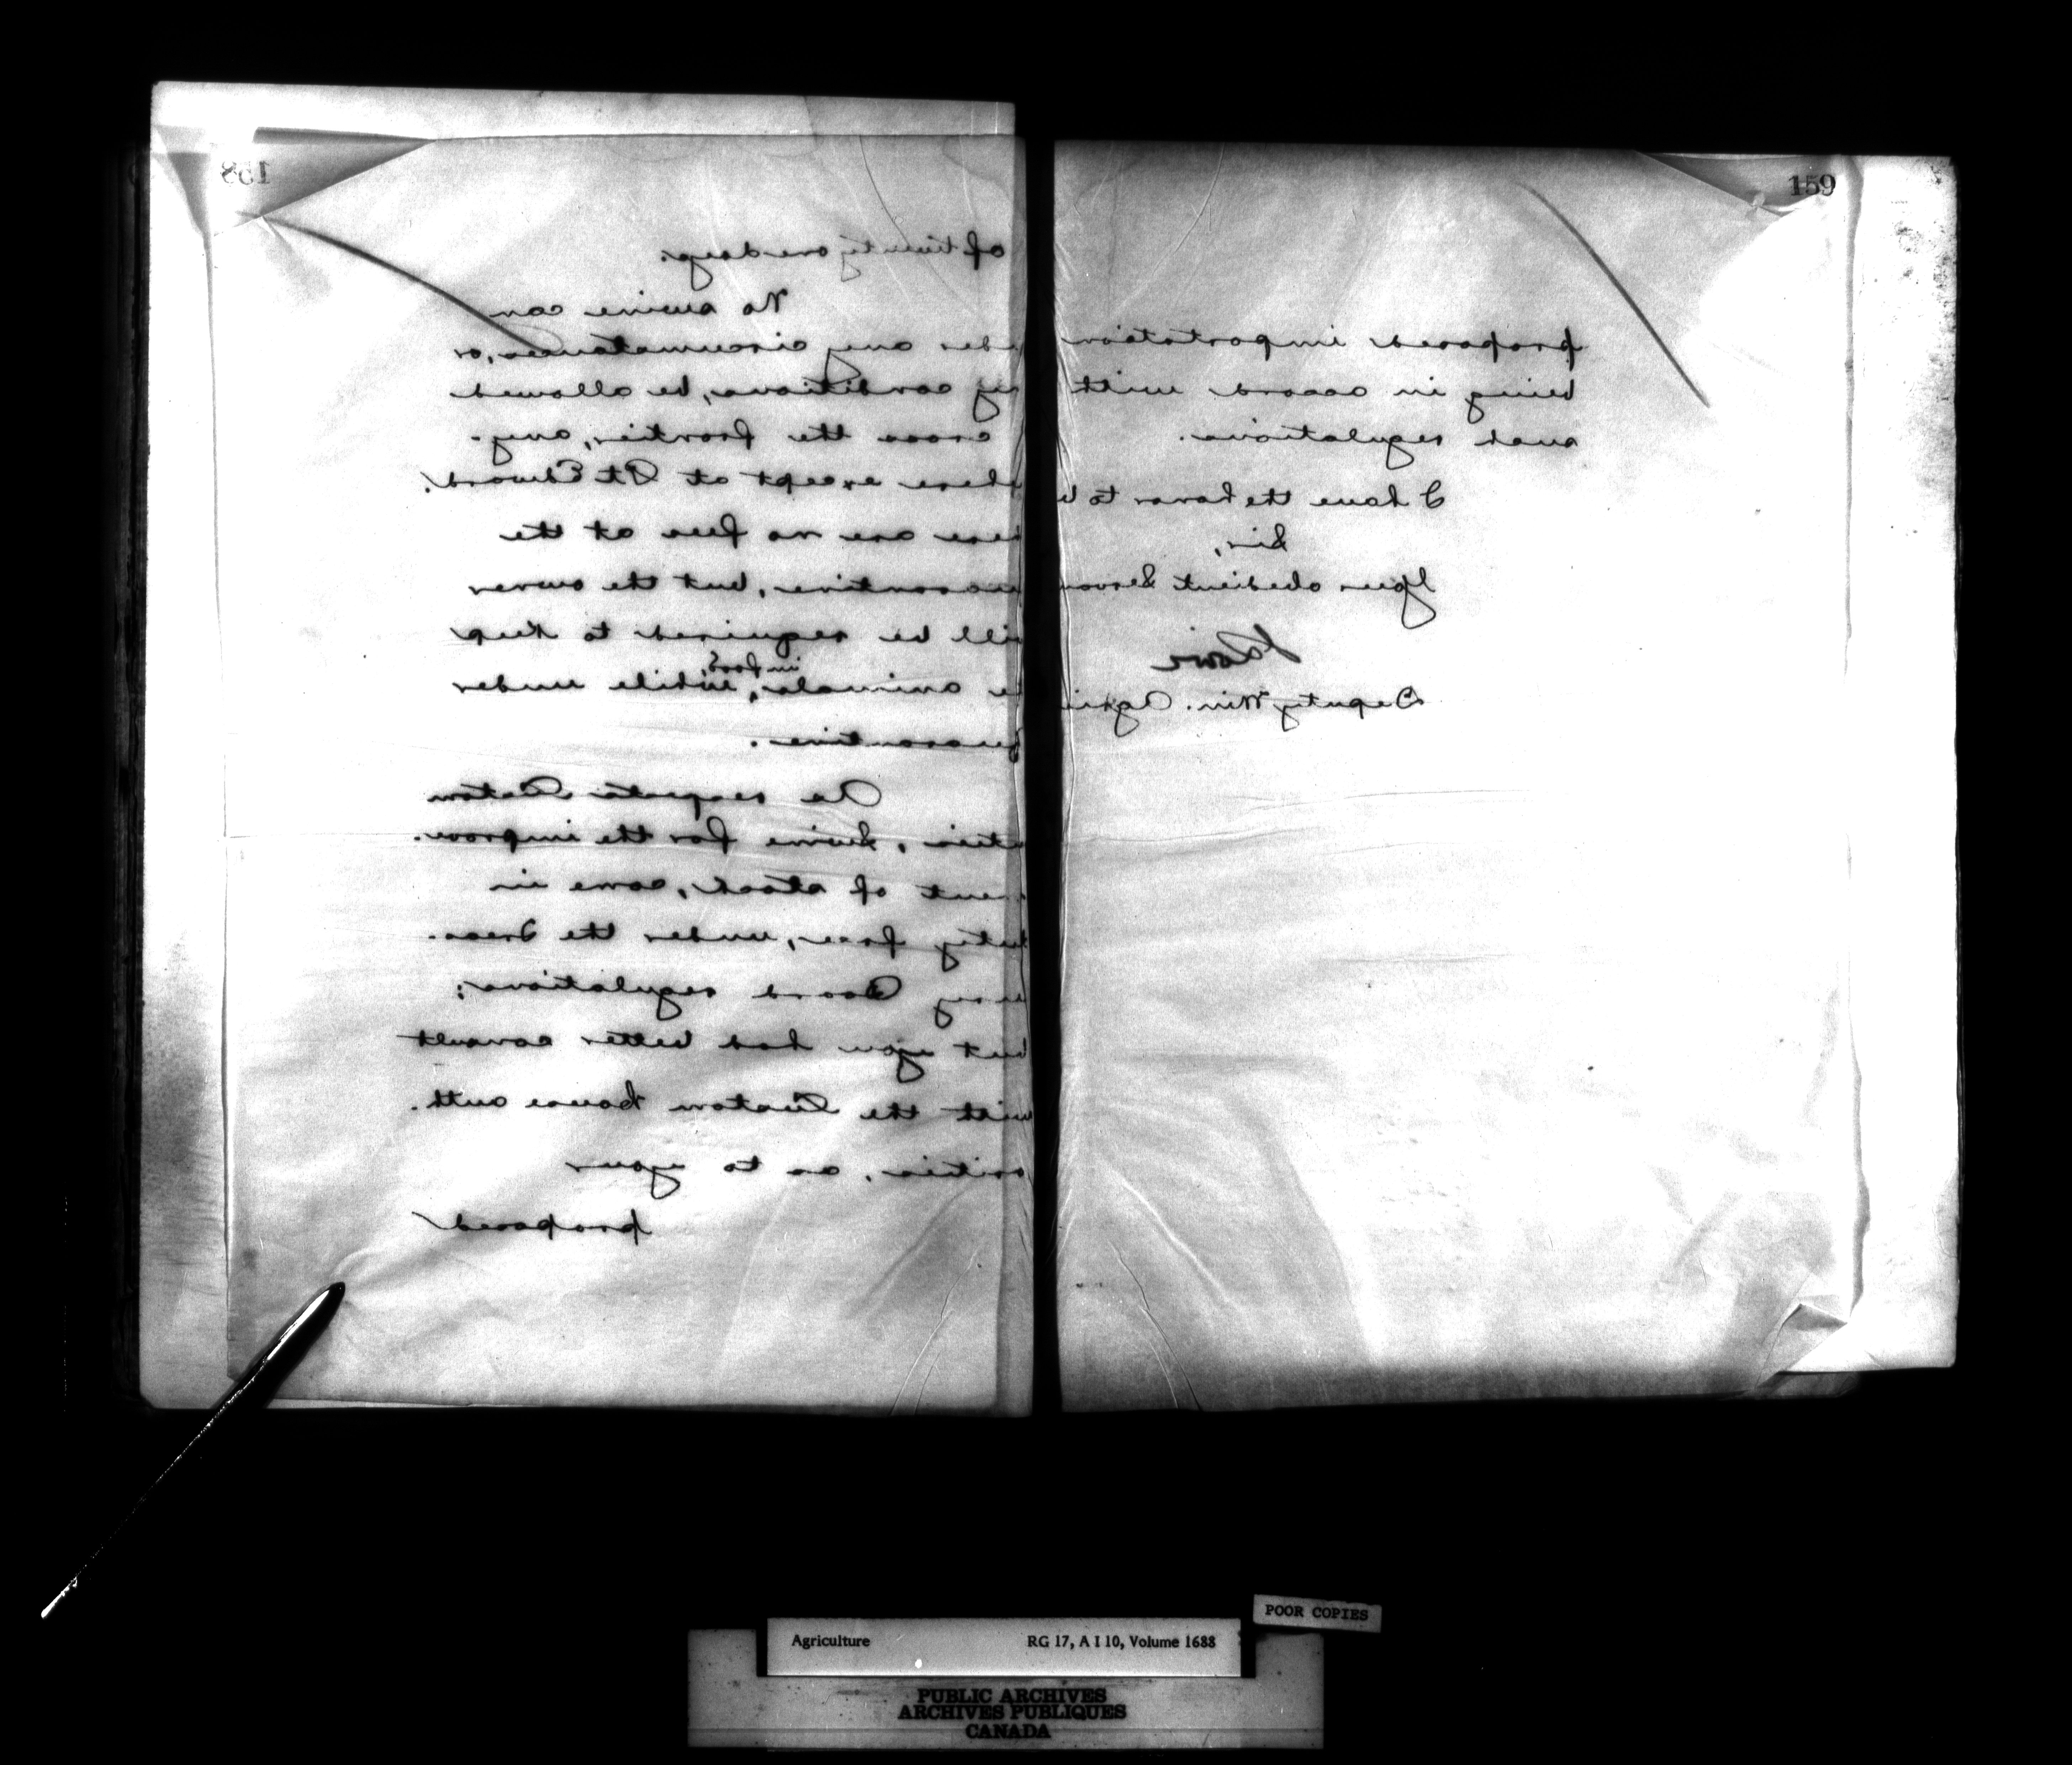 158
of twenty one days.
No swine can
under any circumstances, or
any conditions, be allowed
cross the frontier, any-
where except at Pt Edward.
There are no fees at the
quarantine, but the owner
will be required to keep
in food,
the animals, while under
quarantine.
As respects Custom
duties, Swine for the improve-
ment of stock, come in
duty free, under the Treas-
ury Board regulations;
but you had better consult
with the Custom house auth-
orities, as to your
proposed
159
proposed importation
being in accord with
such regulations.
I have the honor to b
Sir,
Your obedient Servan
J Lowe
Deputy Min. Agri
POOR COPIES
Agriculture RG 17, A I 10, Volume 1688
PUBLIC ARCHIVES
ARCHIVES PUBLIQUES
CANADA